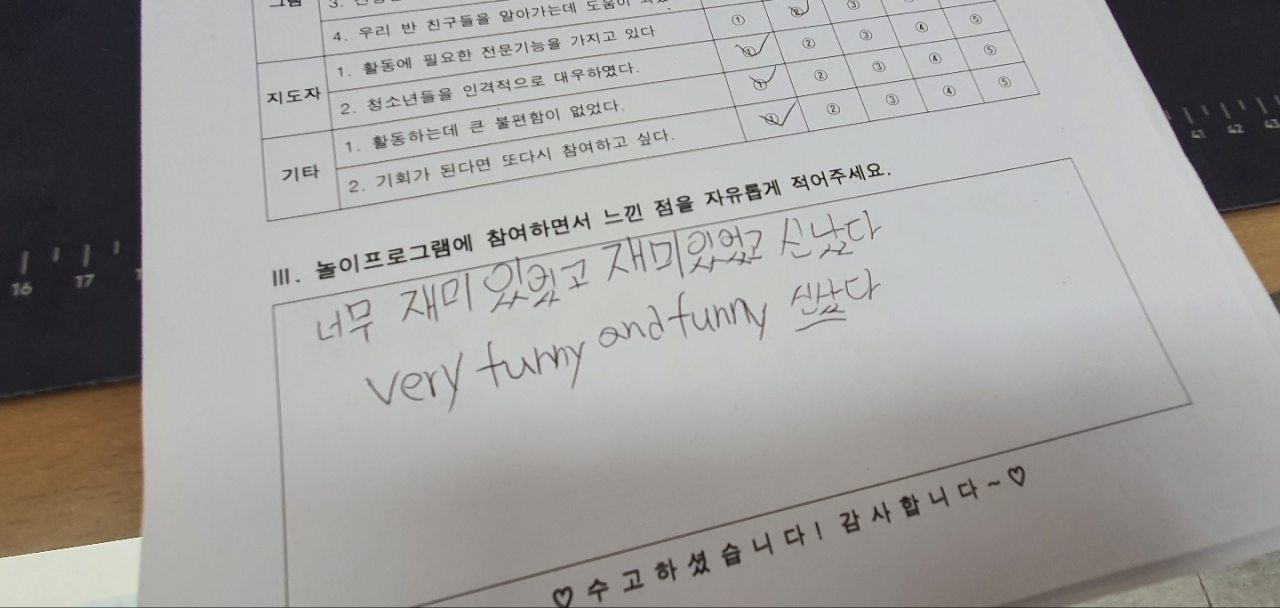 그램
4. 우리 반 친구들을 알아가는데 도움이 ① ② ③
지도자
1. 활동에 필요한 전문기능을 가지고 있다 ① ② ③ ④ ⑤
2. 청소년들을 인격적으로 대우하였다. ① ② ③ ④ ⑤
기타
1. 활동하는데 큰 불편함이 없었다. ① ② ③ ④ ⑤
2. 기회가 된다면 또다시 참여하고 싶다.
III. 놀이프로그램에 참여하면서 느낀 점을 자유롭게 적어주세요.
너무 재미있었고 재미있었고 신났다
very funny and funny 신났다
♡수고하셨습니다! 감사합니다~♡
16 17
41 42 43